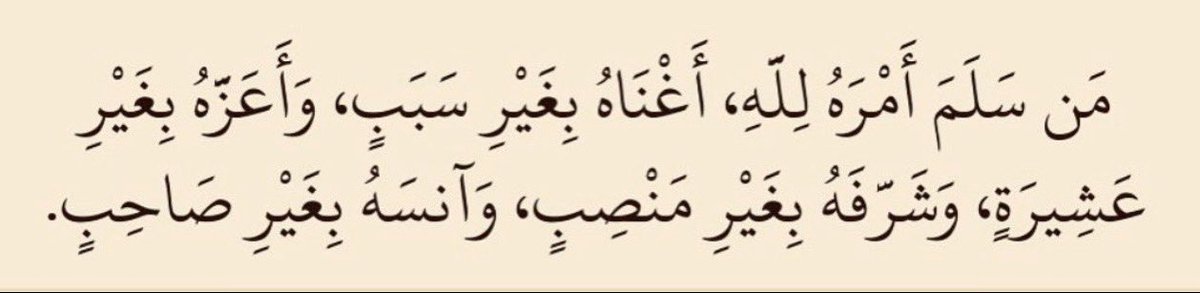 مَن سَلَمَ أَمْرَهُ لِلّهِ، أَغْنَاهُ بِغَيْرِ سَبَبٍ، وَأَعَزّهُ بِغَيْرِ
عَشِيرَةٍ، وَشَرّفَهُ بِغَيْرِ مَنْصِبٍ، وَآنسَهُ بِغَيْرِ صَاحِبٍ.